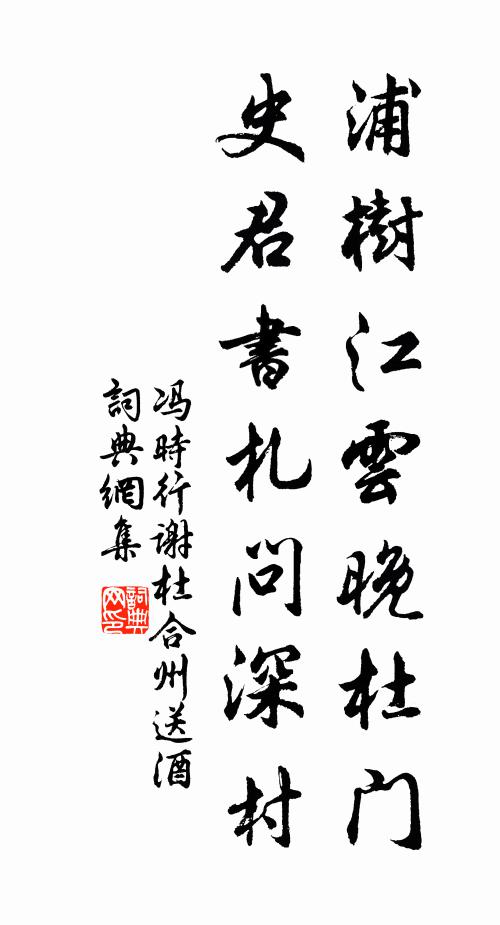 浦樹江雲晚杜门
史君書札问深村
冯時行谢杜合州送酒
詞典網集
詞典网印